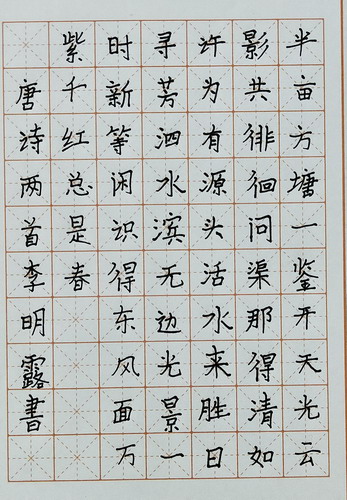 半亩方塘一鉴开天光云
影共徘徊问渠那得清如
许为有源头活水来胜日
寻芳泗水滨无边光景一
时新等闲识得东风面万
紫千红总是春
唐诗两首李明露書